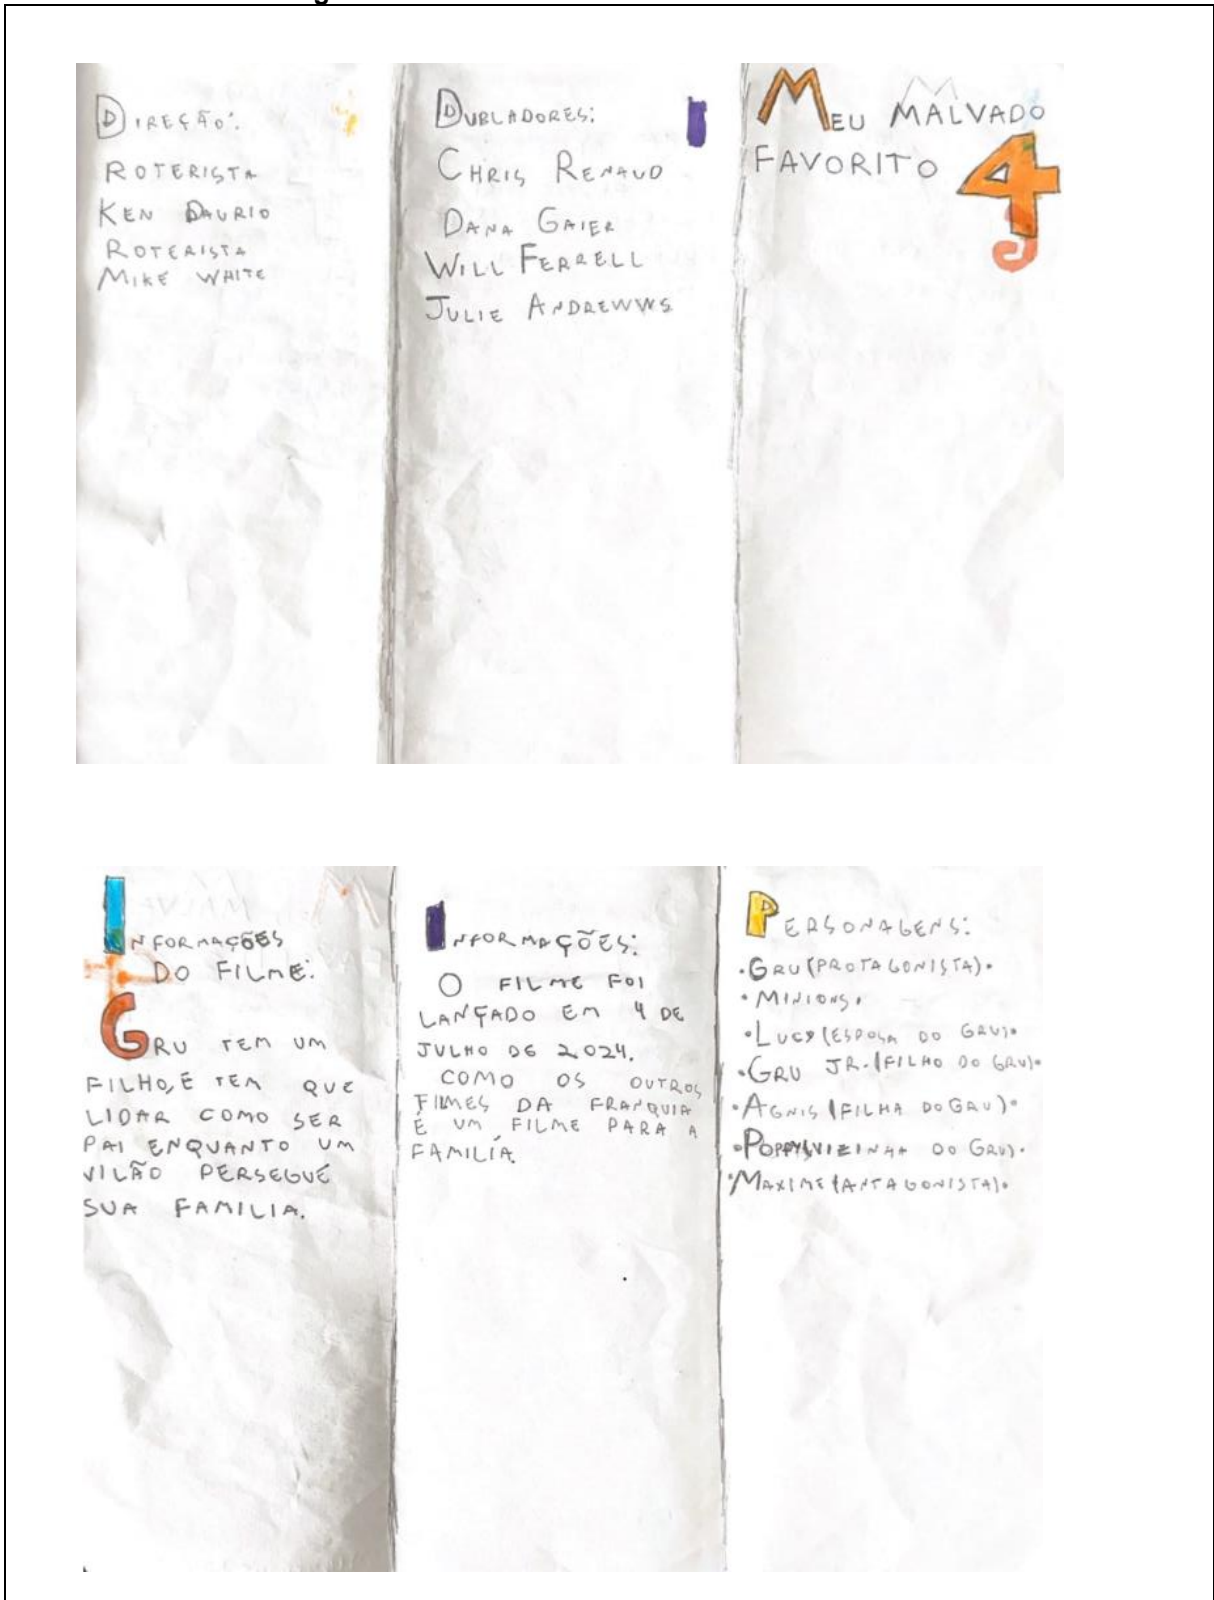 DIREÇÃO:
ROTERISTA
KEN DAURIO
ROTERISTA
MIKE WHITE
DUBLADORES:
CHRIS RENAUD
DANA GAIER
WILL FERRELL
JULIE ANDREWWS
MEU MALVADO
FAVORITO 4
INFORMAÇÕES
DO FILME:
GRU TEM UM
FILHO, E TEM QUE
LIDAR COMO SER
PAI ENQUANTO UM
VILÃO PERSEGUE
SUA FAMILIA.
INFORMAÇÕES:
O FILME FOI
LANÇADO EM 4 DE
JULHO DE 2024.
COMO OS OUTROS
FILMES DA FRANQUIA
É UM FILME PARA A
FAMILÍA.
PERSONAGENS:
•GRU (PROTAGONISTA).
•MINIONS.
•LUCY (ESPOSA DO GRU).
•GRU JR. (FILHO DO GRU).
•AGNIS (FILHA DO GRU).
•POPPY (VIZINHA DO GRU).
•MAXIME (ANTAGONISTA).